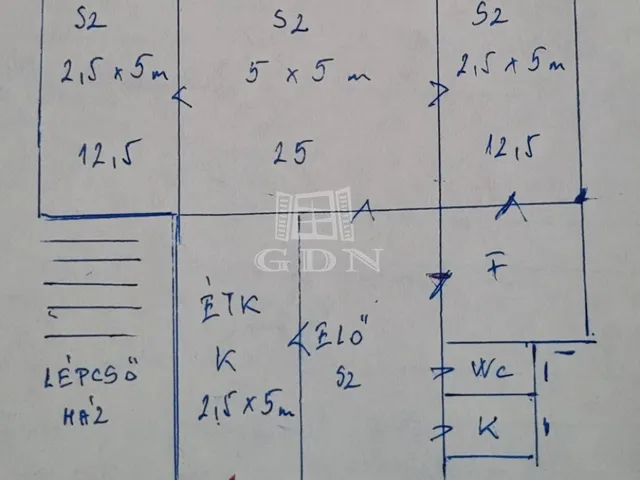 SZ
2,5 x 5 m
12,5
SZ
5 x 5 m
25
SZ
2,5 x 5 m
12,5
GDN
LÉPCSŐ
HÁZ
ÉTK
K
2,5 x 5 m
ELŐ
SZ
F
WC
K